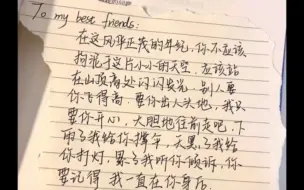 To my best friends:
在这风华正茂的年纪,你不应该
拘泥于这片小小的天空,应该站
在山顶高处闪闪发光。别人要
你飞得高,要你出人头地,我只
要你开心,大胆地往前走吧,下
雨了我给你撑伞,天黑了我给
你打灯,累了我听你倾诉,你
要记得我一直在你身后